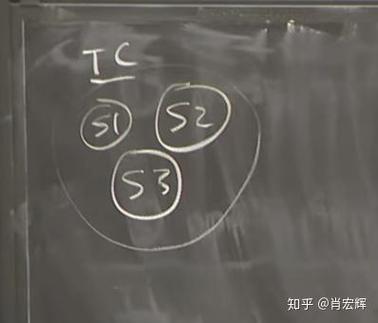 TC
S1 S2
S3
知乎 @肖宏辉